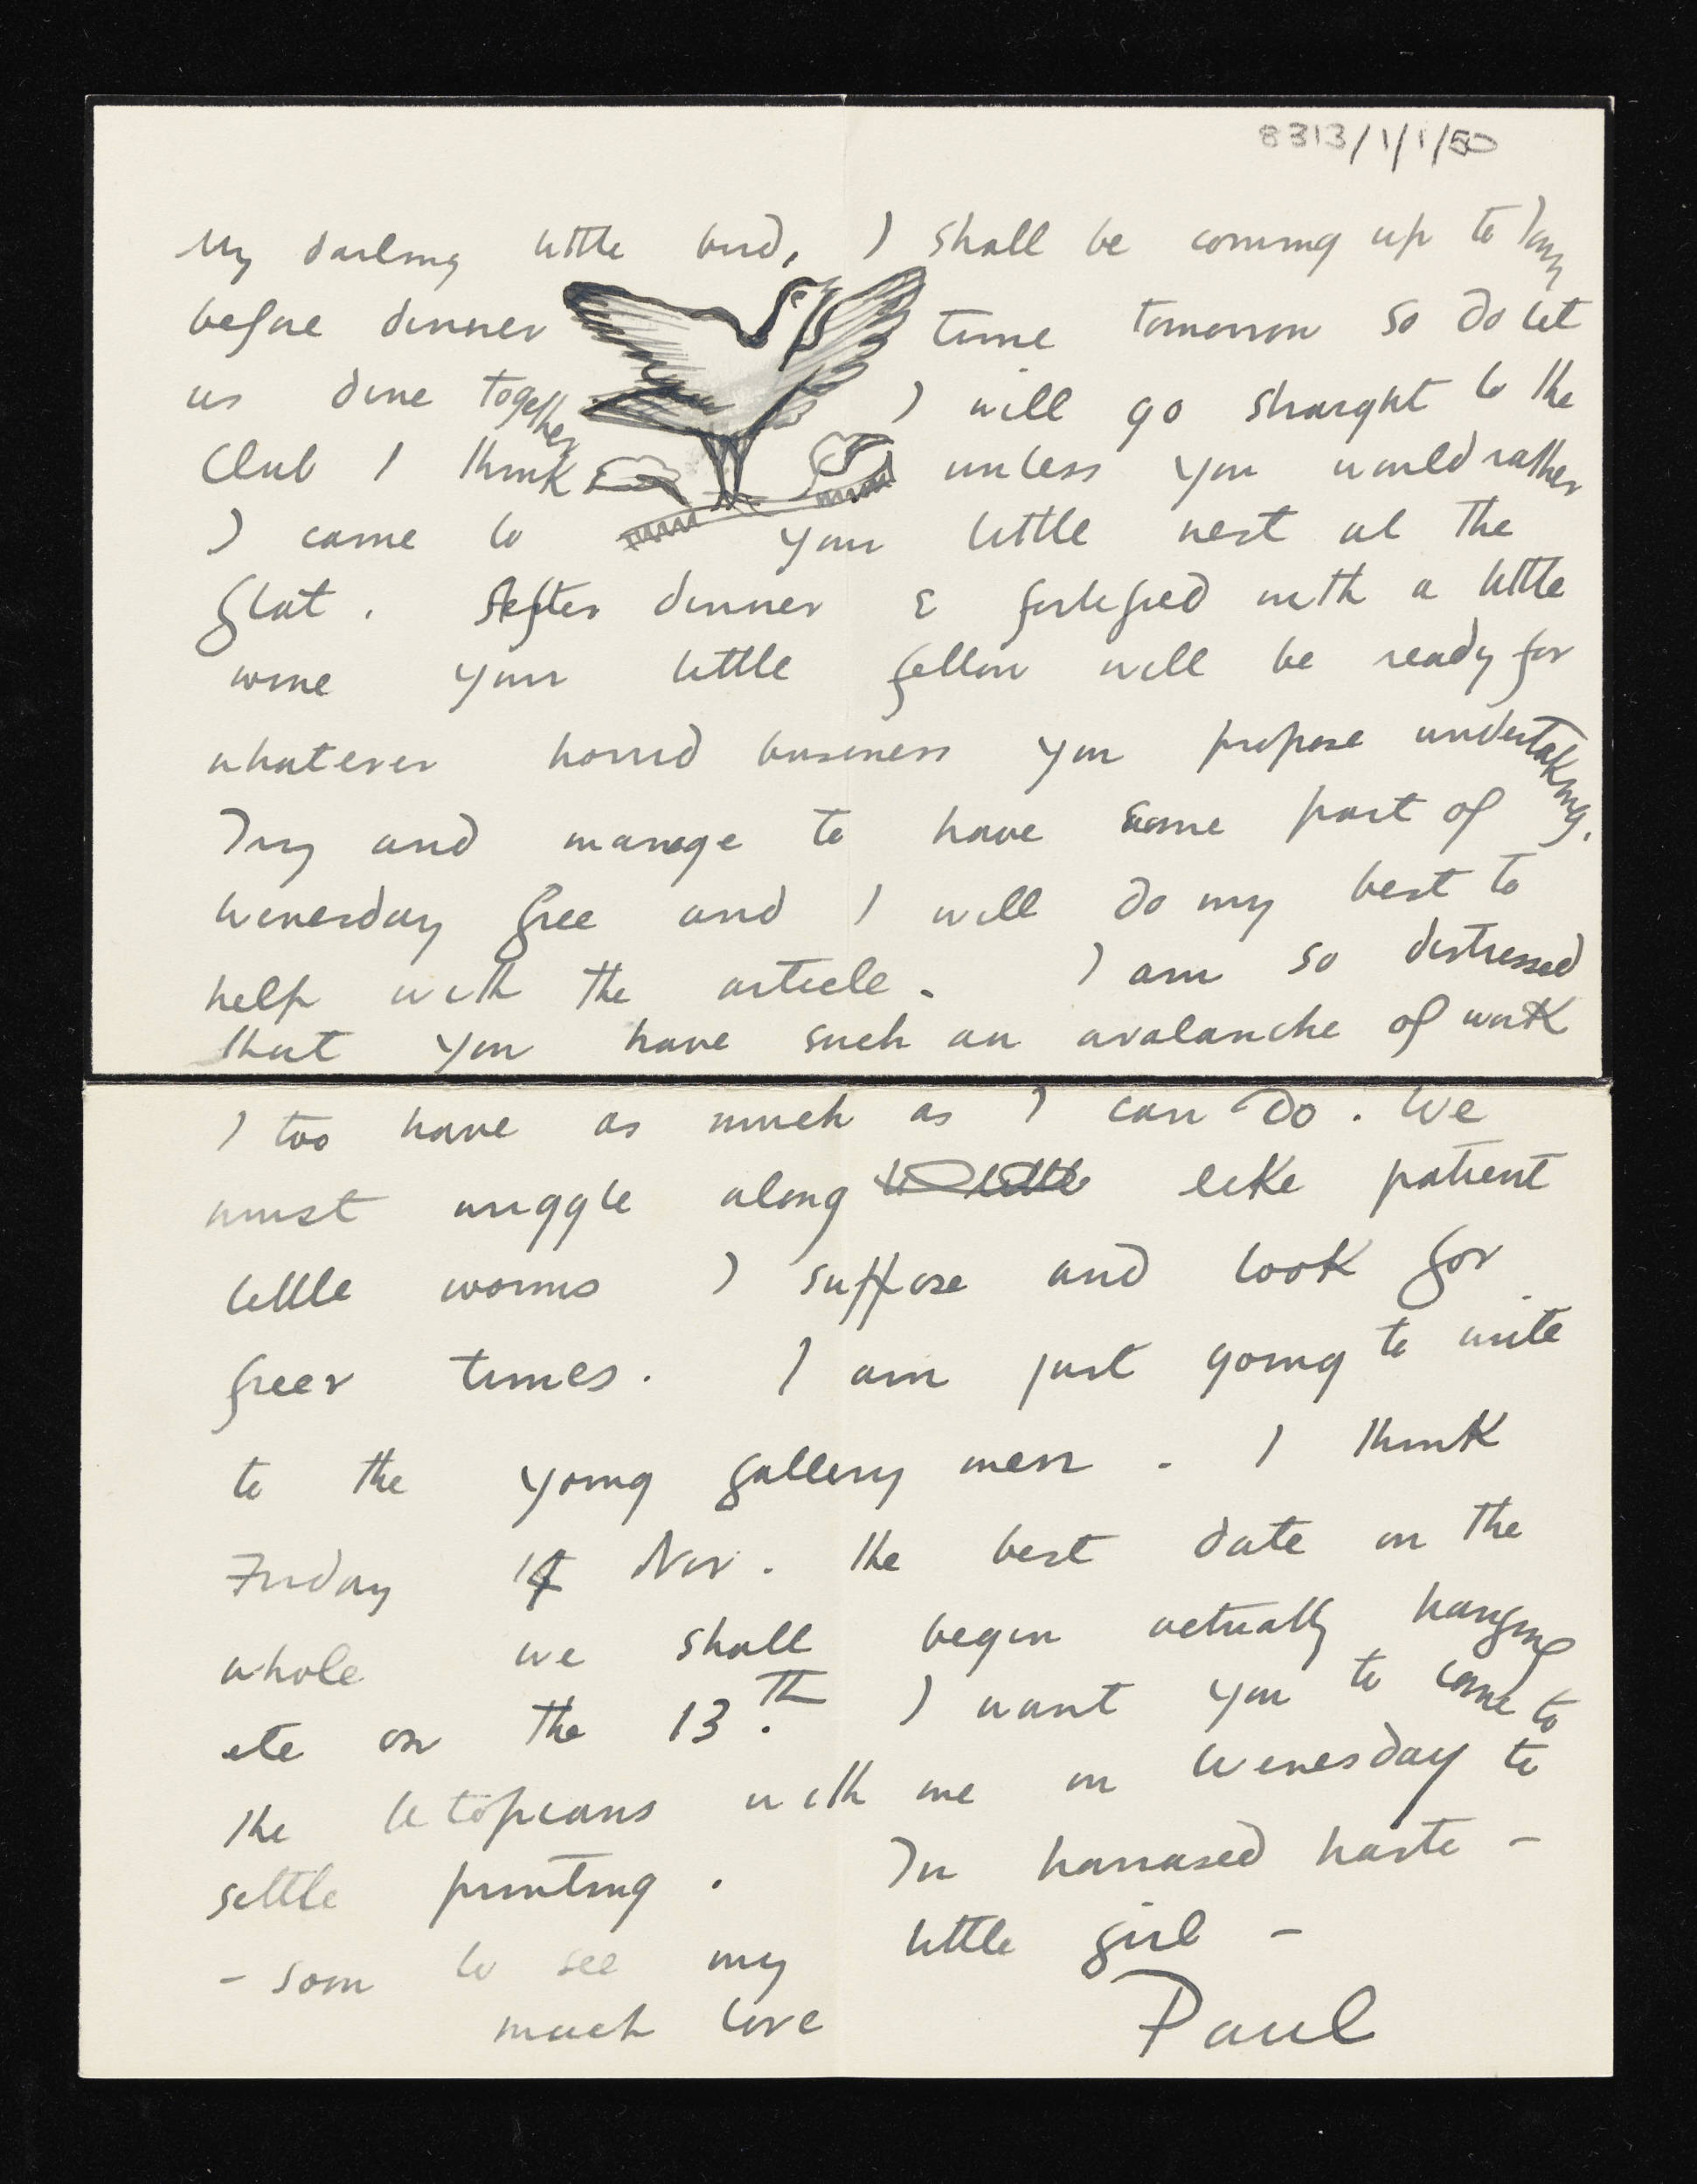 8313/1/1/50
My darling little bird, I shall be coming up to
before dinner time tomorrow so do let
us dine together I will go straight to the
Club I think unless you would rather
I came to your little nest at the
flat. After dinner & fortified with a little
wine your little fellow will be ready for
whatever horrid business you propose undertaking.
Try and manage to have some part of
Wenesday free and I will do my best to
help with the article. I am so distressed
that you have such an avalanche of work
I too have as much as I can do. We
must wriggle along like patient
little worms I suppose and look for
freer times. I am just going to write
to the young gallery men. I think
Friday 14 Nov. the best date on the
whole we shall begin actually hanging
etc on the 13.th I want you to come to
the Utopians with me on Wenesday to
settle printing. In harrased haste -
- soon to see my little girl -
much love Paul